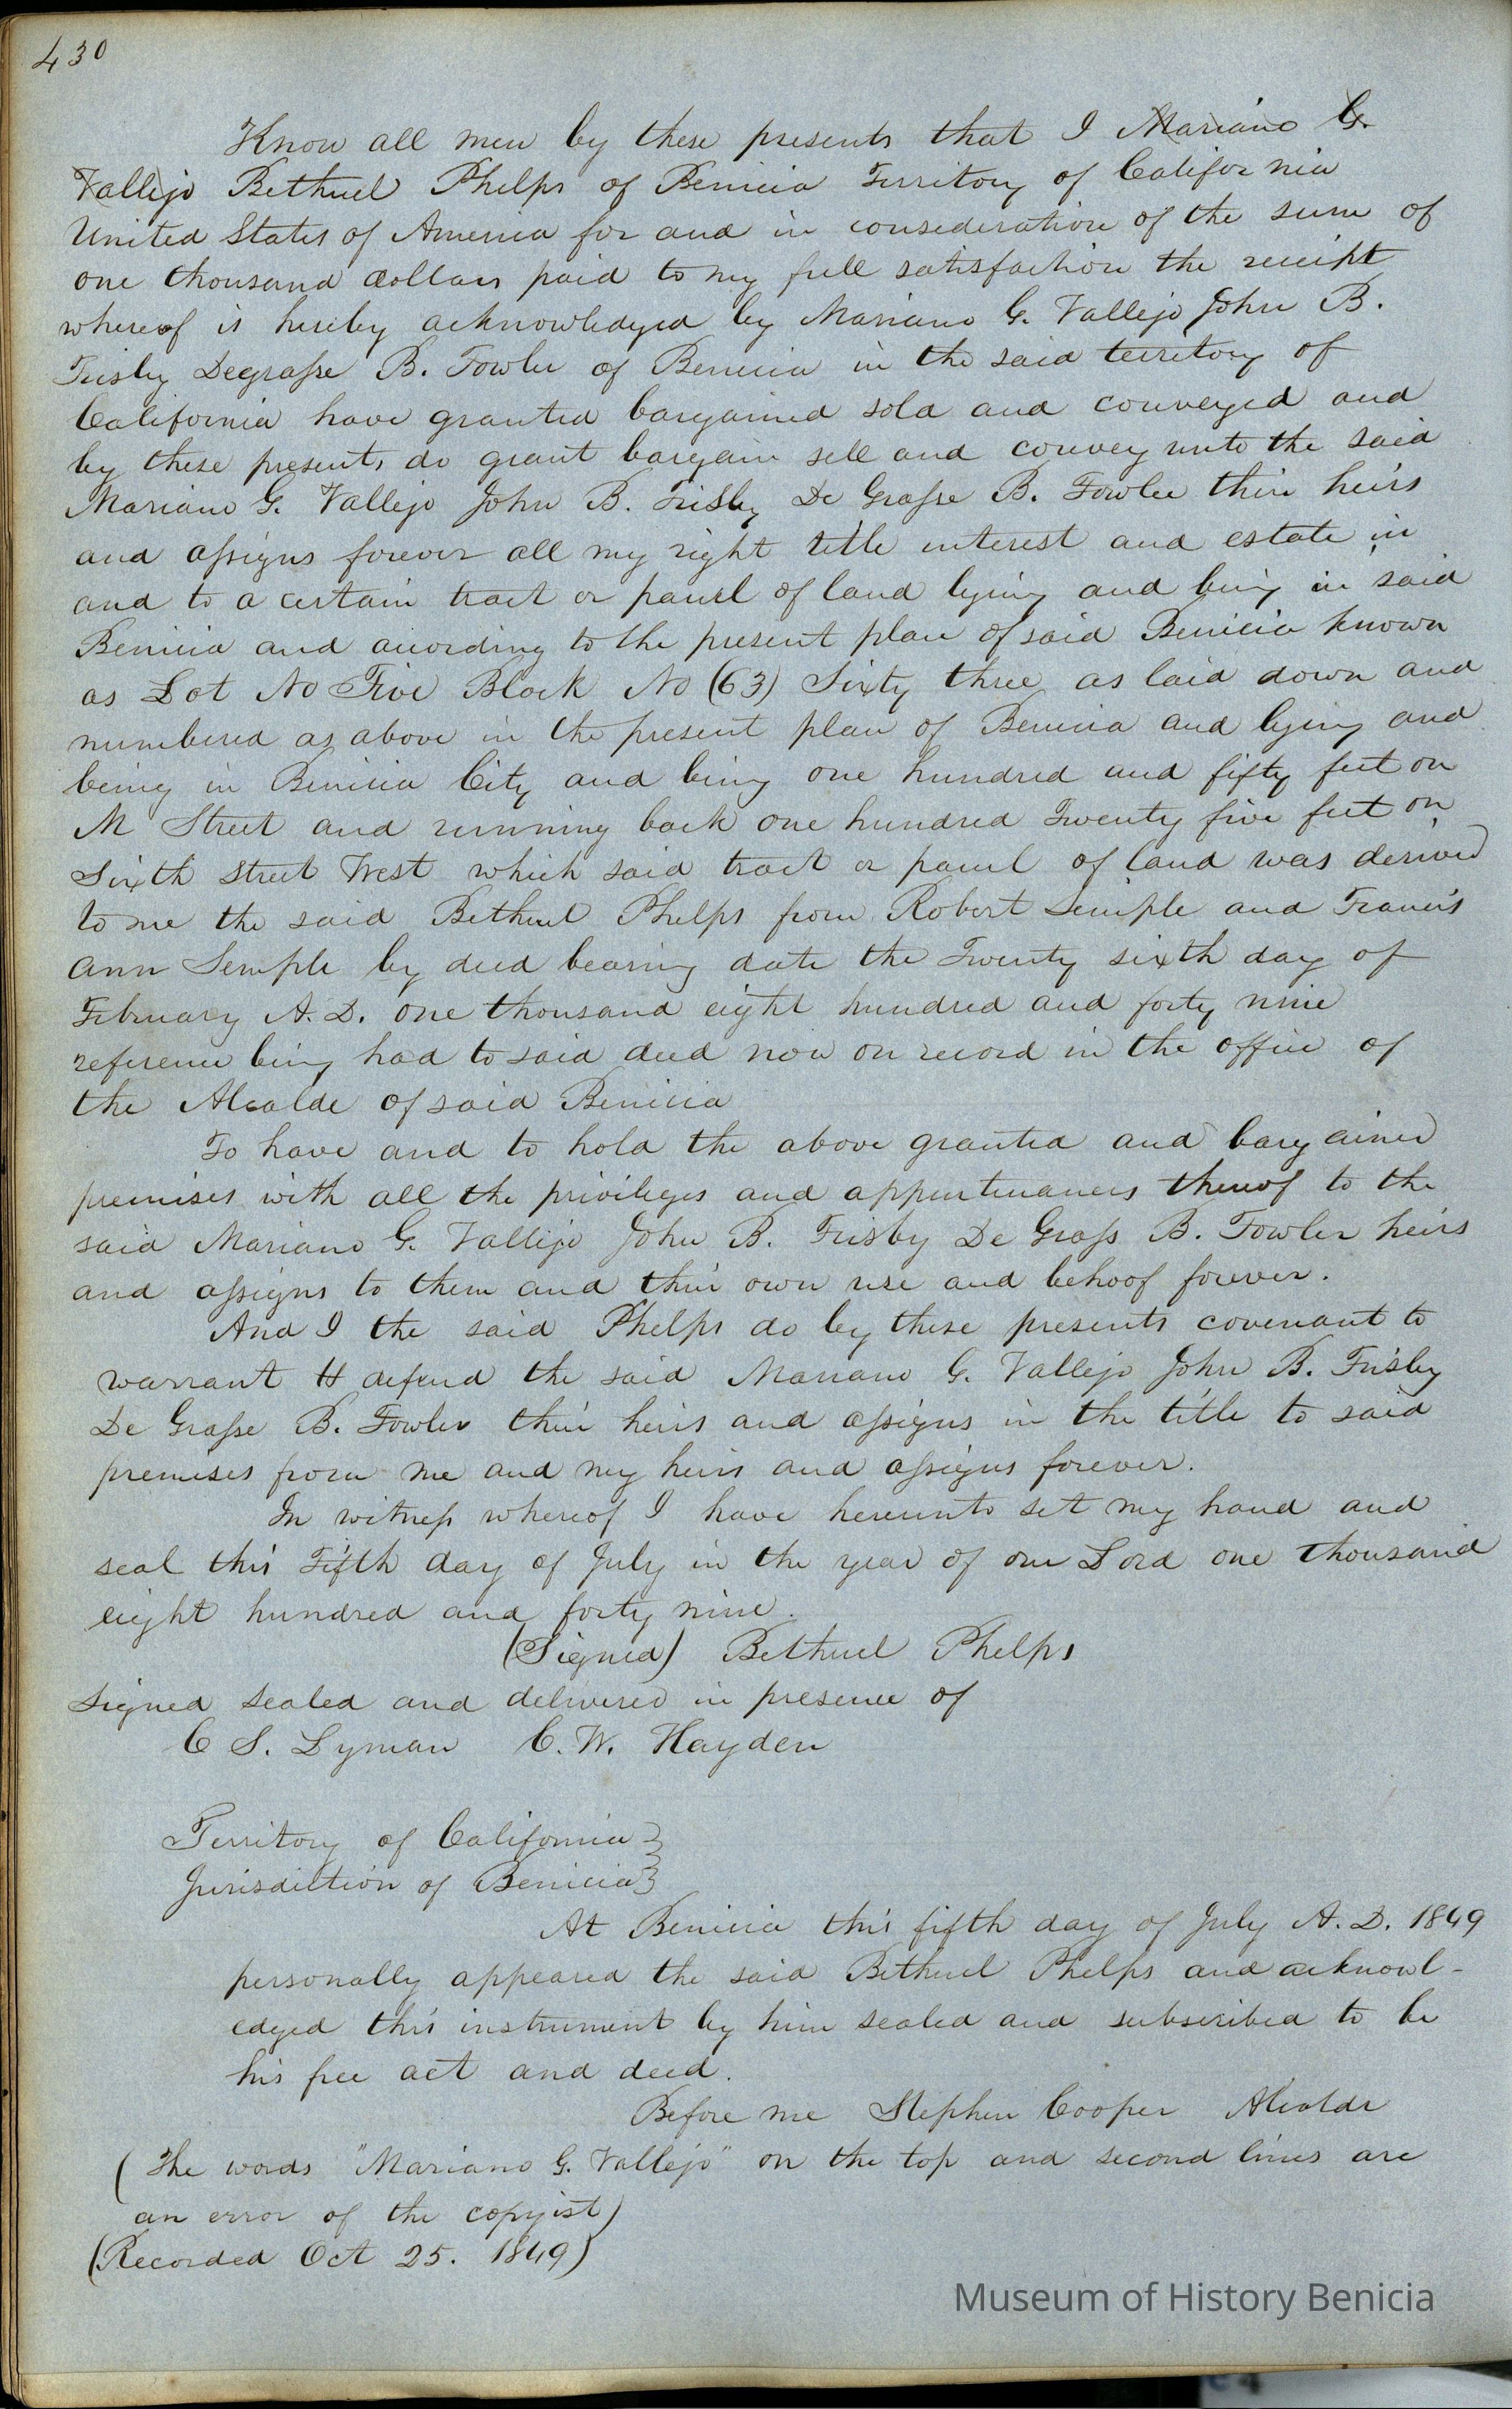 430
Know all men by these presents that I Mariano G.
Vallejo Bethuel Phelps of Benicia Territory of California
United States of America for and in consideration of the sum of
one thousand dollars paid to my full satisfaction the receipt
whereof is hereby acknowledged by Mariano G. Vallejo John B.
Frisby Degrasse B. Fowler of Benicia in the said territory of
California have granted bargained sold and conveyed and
by these presents do grant bargain sell and convey unto the said
Mariano G. Vallejo John B. Frisby De Grasse B. Fowler their heirs
and assigns forever all my right title interest and estate in
and to a certain tract or parcel of land lying and being in said
Benicia and according to the present plan of said Benicia known
as Lot No Five Block No (63) Sixty three as laid down and
numbered as above in the present plan of Benicia and lying and
being in Benicia City and being one hundred and fifty feet on
M Street and running back one hundred Twenty five feet on
Sixth Street West which said tract or parcel of land was derived
to me the said Bethuel Phelps from Robert Semple and Francis
Ann Semple by deed bearing date the Twenty sixth day of
February A.D. one thousand eight hundred and forty nine
reference being had to said deed now on record in the office of
the Alcalde of said Benicia
To have and to hold the above granted and bargained
premises with all the privileges and appurtenances thereof to the
said Mariano G. Vallejo John B. Frisby De Grass B. Fowler heirs
and assigns to them and their own use and behoof forever.
And I the said Phelps do by these presents covenant to
warrant & defend the said Mariano G. Vallejo John B. Frisby
De Grasse B. Fowler their heirs and assigns in the title to said
premises from me and my heirs and assigns forever.
In witness whereof I have hereunto set my hand and
seal this Fifth day of July in the year of our Lord one thousand
eight hundred and forty nine.
(Signed) Bethuel Phelps
Signed sealed and delivered in presence of
C S. Lyman C. W. Hayden
Territory of California }
Jurisdiction of Benicia }
At Benicia this fifth day of July A.D. 1849
personally appeared the said Bethuel Phelps and acknowl-
edged this instrument by him sealed and subscribed to be
his free act and deed.
Before me Stephen Cooper Alcalde
(The words "Mariano G. Vallejo" on the top and second lines are
an error of the copyist)
(Recorded Oct 25. 1849)
Museum of History Benicia